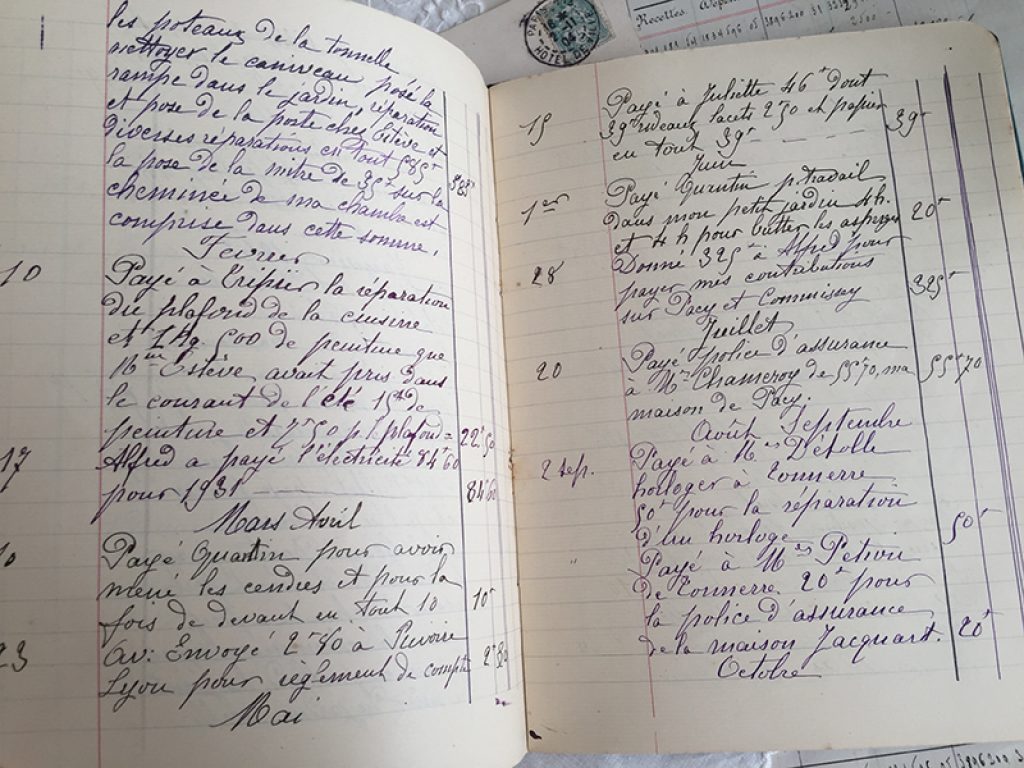 les poteaux de la tonnelle
nettoyer le caniveau posé la
rampe dans le jardin, réparation
et pose de la porte chez Estève et
diverses réparations en tout 585f 585f
la pose de la mitre de 35f sur la
cheminée de ma chambre est
comprise dans cette somme.
Février
10 Payé à Tripier la réparation
du plafond de la cuisine
et 1 Kg. 500 de peinture que
Mme Estève avait pris dans
le courant de l'été 15f de
peinture et 7f50 p. le plafond = 22f50
17 Alfred a payé l'électricité 84f60
pour 1931 84f60
Mars Avril
Payé Quantin pour avoir
mené les cendres et pour la
fois de devant en tout 10 10f
23 Av: Envoyé 2f80 à Rivoire
Lyon pour règlement de compte 2f80
Mai
Recettes
HOTEL DE
15 Payé à Juliette 46f dont
39f rideaux lacets 2f0 et papier
en tout 39f 39f
Juin
1er Payé Quentin p. travail
dans mon petit jardin 4h.
et 4h pour butter les asperges 20f
28 Donné 325f à Alfred pour
payer mes contributions
sur Pacy et Commissey 325f
Juillet
20 Payé police d'assurance
à Mr Chameroy de 55f70, ma 55f70
maison de Pacy.
Août Septembre
2 Sep. Payé à Mr Détolle
horloger à Tonnerre
50f pour la réparation
d'un horloge 50f
" Payé à Mr Petion
de Tonnerre 20f pour
la police d'assurance
de la maison Jacquart. 20f
Octobre